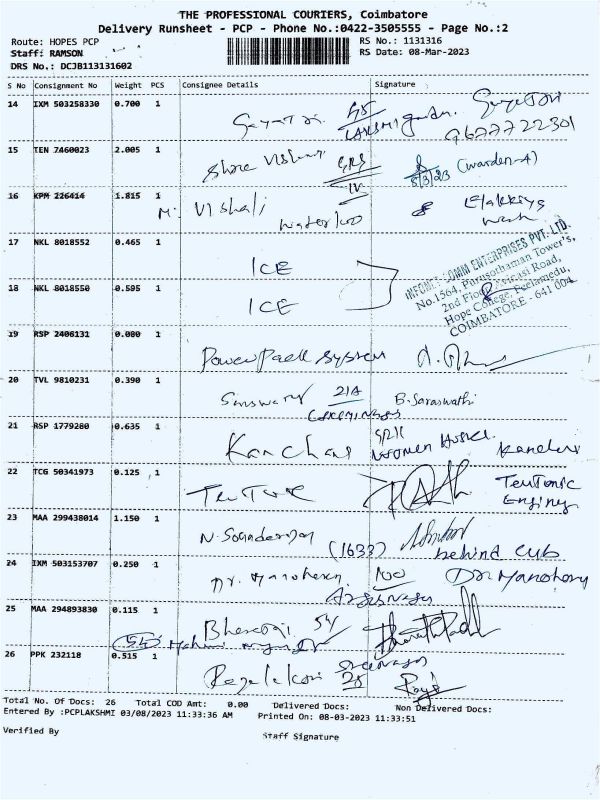 THE PROFESSIONAL COURIERS, Coimbatore
Delivery Runsheet - PCP - Phone No.:0422-3505555 - Page No.:2
Route: HOPES PCP RS No.: 1131316
Staff: RAMSON RS Date: 08-Mar-2023
DRS No.: DCJB113131602
S No Consignment No Weight PCS Consignee Details Signature
14 IXM 503258330 0.700 1
9677722301
15 TEN 7460023 2.005 1
8/3/23 (warden-A)
16 KPM 226414 1.815 1
M. Vishali
waterloo
17 NKL 8018552 0.465 1
ICE
INFOMET COMM ENTERPRISES PVT. LTD.
No.1564, Purusothaman Tower's,
2nd Floor, Avinasi Road,
Hope College, Peelamedu,
COIMBATORE - 641 004
18 NKL 8018550 0.595 1
ICE
19 RSP 2406131 0.080 1
Powerpack system
20 TVL 9810231 0.390 1
21A
B. Saraswathi
21 RSP 1779280 0.635 1
Kanchan
22 TCG 50341973 0.125 1
Teutonic
23 MAA 299438014 1.150 1
(1633) behind CUB
24 IXM 503153707 0.250 1
Dr. 100
Dr. Manohar
25 MAA 294893830 0.115 1
54
26 PPK 232118 0.515 1
28
Total No. Of Docs: 26 Total COD Amt: 0.00 Delivered Docs: Non Delivered Docs:
Entered By :PCPLAKSHMI 03/08/2023 11:33:36 AM Printed On: 08-03-2023 11:33:51
Verified By Staff Signature